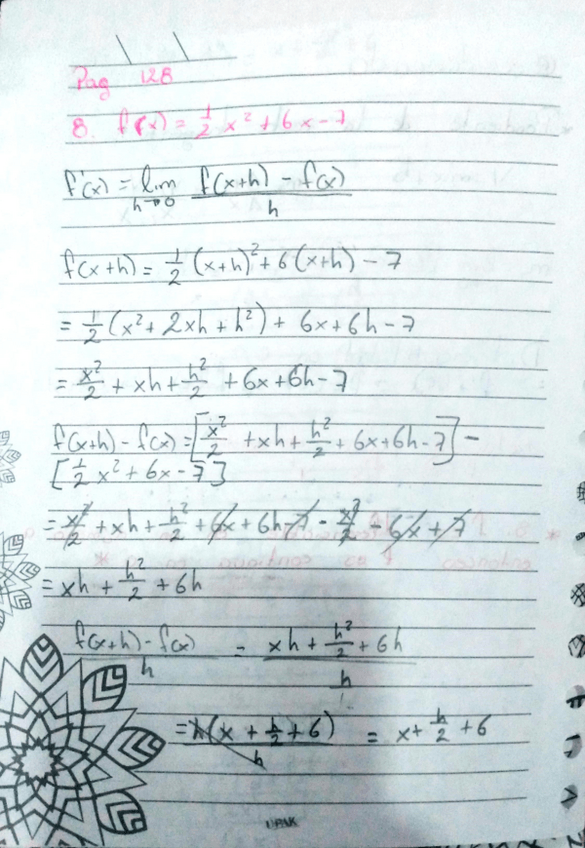 Pag 128
8. f(x) = 1/2 x² + 6x - 7
f'(x) = lim h→0 f(x+h) - f(x) / h
f(x+h) = 1/2 (x+h)² + 6(x+h) - 7
= 1/2 (x² + 2xh + h²) + 6x + 6h - 7
= x²/2 + xh + h²/2 + 6x + 6h - 7
f(x+h) - f(x) = [x²/2 + xh + h²/2 + 6x + 6h - 7] -
[1/2 x² + 6x - 7]
= x²/2 + xh + h²/2 + 6x + 6h - 7 - x²/2 - 6x + 7
= xh + h²/2 + 6h
f(x+h) - f(x) / h = xh + h²/2 + 6h / h
= h(x + h/2 + 6) / h = x + h/2 + 6